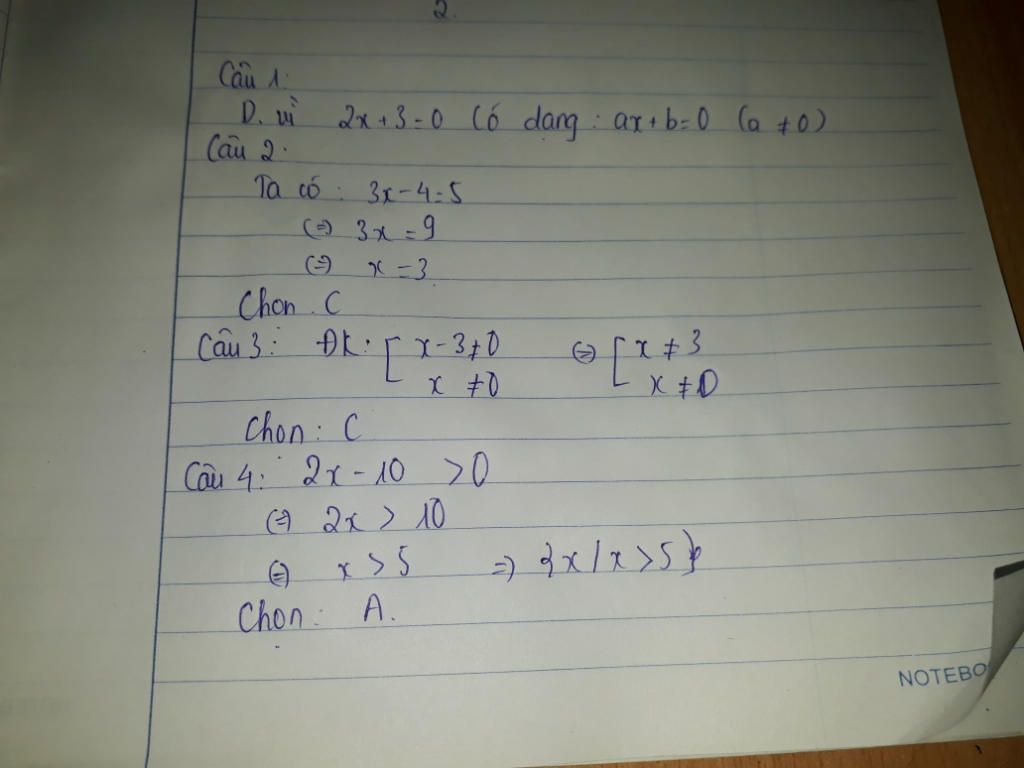 2.
Câu 1:
D. vì 2x + 3 = 0 Có dạng : ax + b = 0 (a ≠ 0)
Câu 2:
Ta có : 3x - 4 = 5
(=) 3x = 9
(=) x = 3
Chọn C
Câu 3: ĐK: [ x - 3 ≠ 0 (=) [ x ≠ 3
x ≠ 0 x ≠ 0
Chọn: C
Câu 4: 2x - 10 > 0
(=) 2x > 10
(=) x > 5 => {x / x > 5}
Chọn: A.
NOTEBO